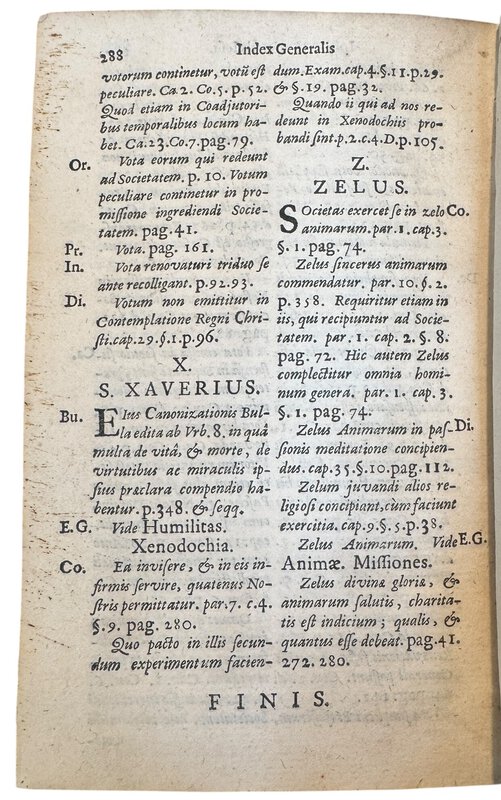 288 Index Generalis
votorum continetur, votū est
peculiare. Ca. 2. Co. 5. p. 52.
Quod etiam in Coadjutori-
bus temporalibus locum ha-
bet. Ca. 23. Co. 7. pag. 79.
Or. Vota eorum qui redeunt
ad Societatem. p. 10. Votum
peculiare continetur in pro-
missione ingrediendi Socie-
tatem. pag. 41.
Pr. Vota. pag. 161.
In. Vota renovaturi triduo se
ante recolligant. p. 92. 93.
Di. Votum non emittitur in
Contemplatione Regni Chri-
sti. cap. 29. §. 1. p. 96.
X.
S. XAVERIUS.
Bu. EIus Canonizationis Bul-
la edita ab Urb. 8. in quâ
multa de vitâ, & morte, de
virtutibus ac miraculis ip-
sius præclara compendio ha-
bentur. p. 348. & seqq.
E.G. Vide Humilitas.
Xenodochia.
Co. Ea invisere, & in eis in-
firmis servire, quatenus No-
stris permittatur. par. 7. c. 4.
§. 9. pag. 280.
Quo pacto in illis secun-
dum experimentum facien-
dum. Exam. cap. 4. §. 11. p. 29.
& §. 19. pag. 32.
Quando ii qui ad nos re-
deunt in Xenodochiis pro-
bandi sint. p. 2. c. 4. D. p. 105.
Z.
ZELUS.
SOcietas exercet se in zelo Co.
animarum. par. 1. cap. 3.
§. 1. pag. 74.
Zelus sincerus animarum
commendatur. par. 10. §. 2.
p. 358. Requiritur etiam in
iis, qui recipiuntur ad Socie-
tatem. par. 1. cap. 2. §. 8.
pag. 72. Hic autem Zelus
complectitur omnia homi-
num genera. par. 1. cap. 3.
§. 1. pag. 74.
Zelus Animarum in pas- Di.
sionis meditatione concipien-
dus. cap. 35. §. 10. pag. 112.
Zelum juvandi alios re-
ligiosi concipiant, cùm faciunt
exercitia. cap. 9. §. 5. p. 38.
Zelus Animarum. Vide E.G.
Animæ. Missiones.
Zelus divinæ gloriæ, &
animarum salutis, charita-
tis est indicium; qualis, &
quantus esse debeat. pag. 41.
272. 280.
FINIS.